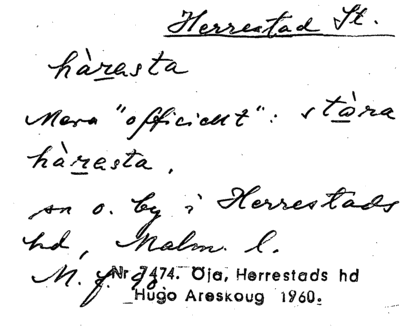 Herrestad St.
hàrasta
Mera "officiellt": stòra
hàrasta,
sn o. by i Herrestads
hd, Malm. l.
M. f. 90.
Nr 7474. Öja, Herrestads hd
Hugo Areskoug 1960.